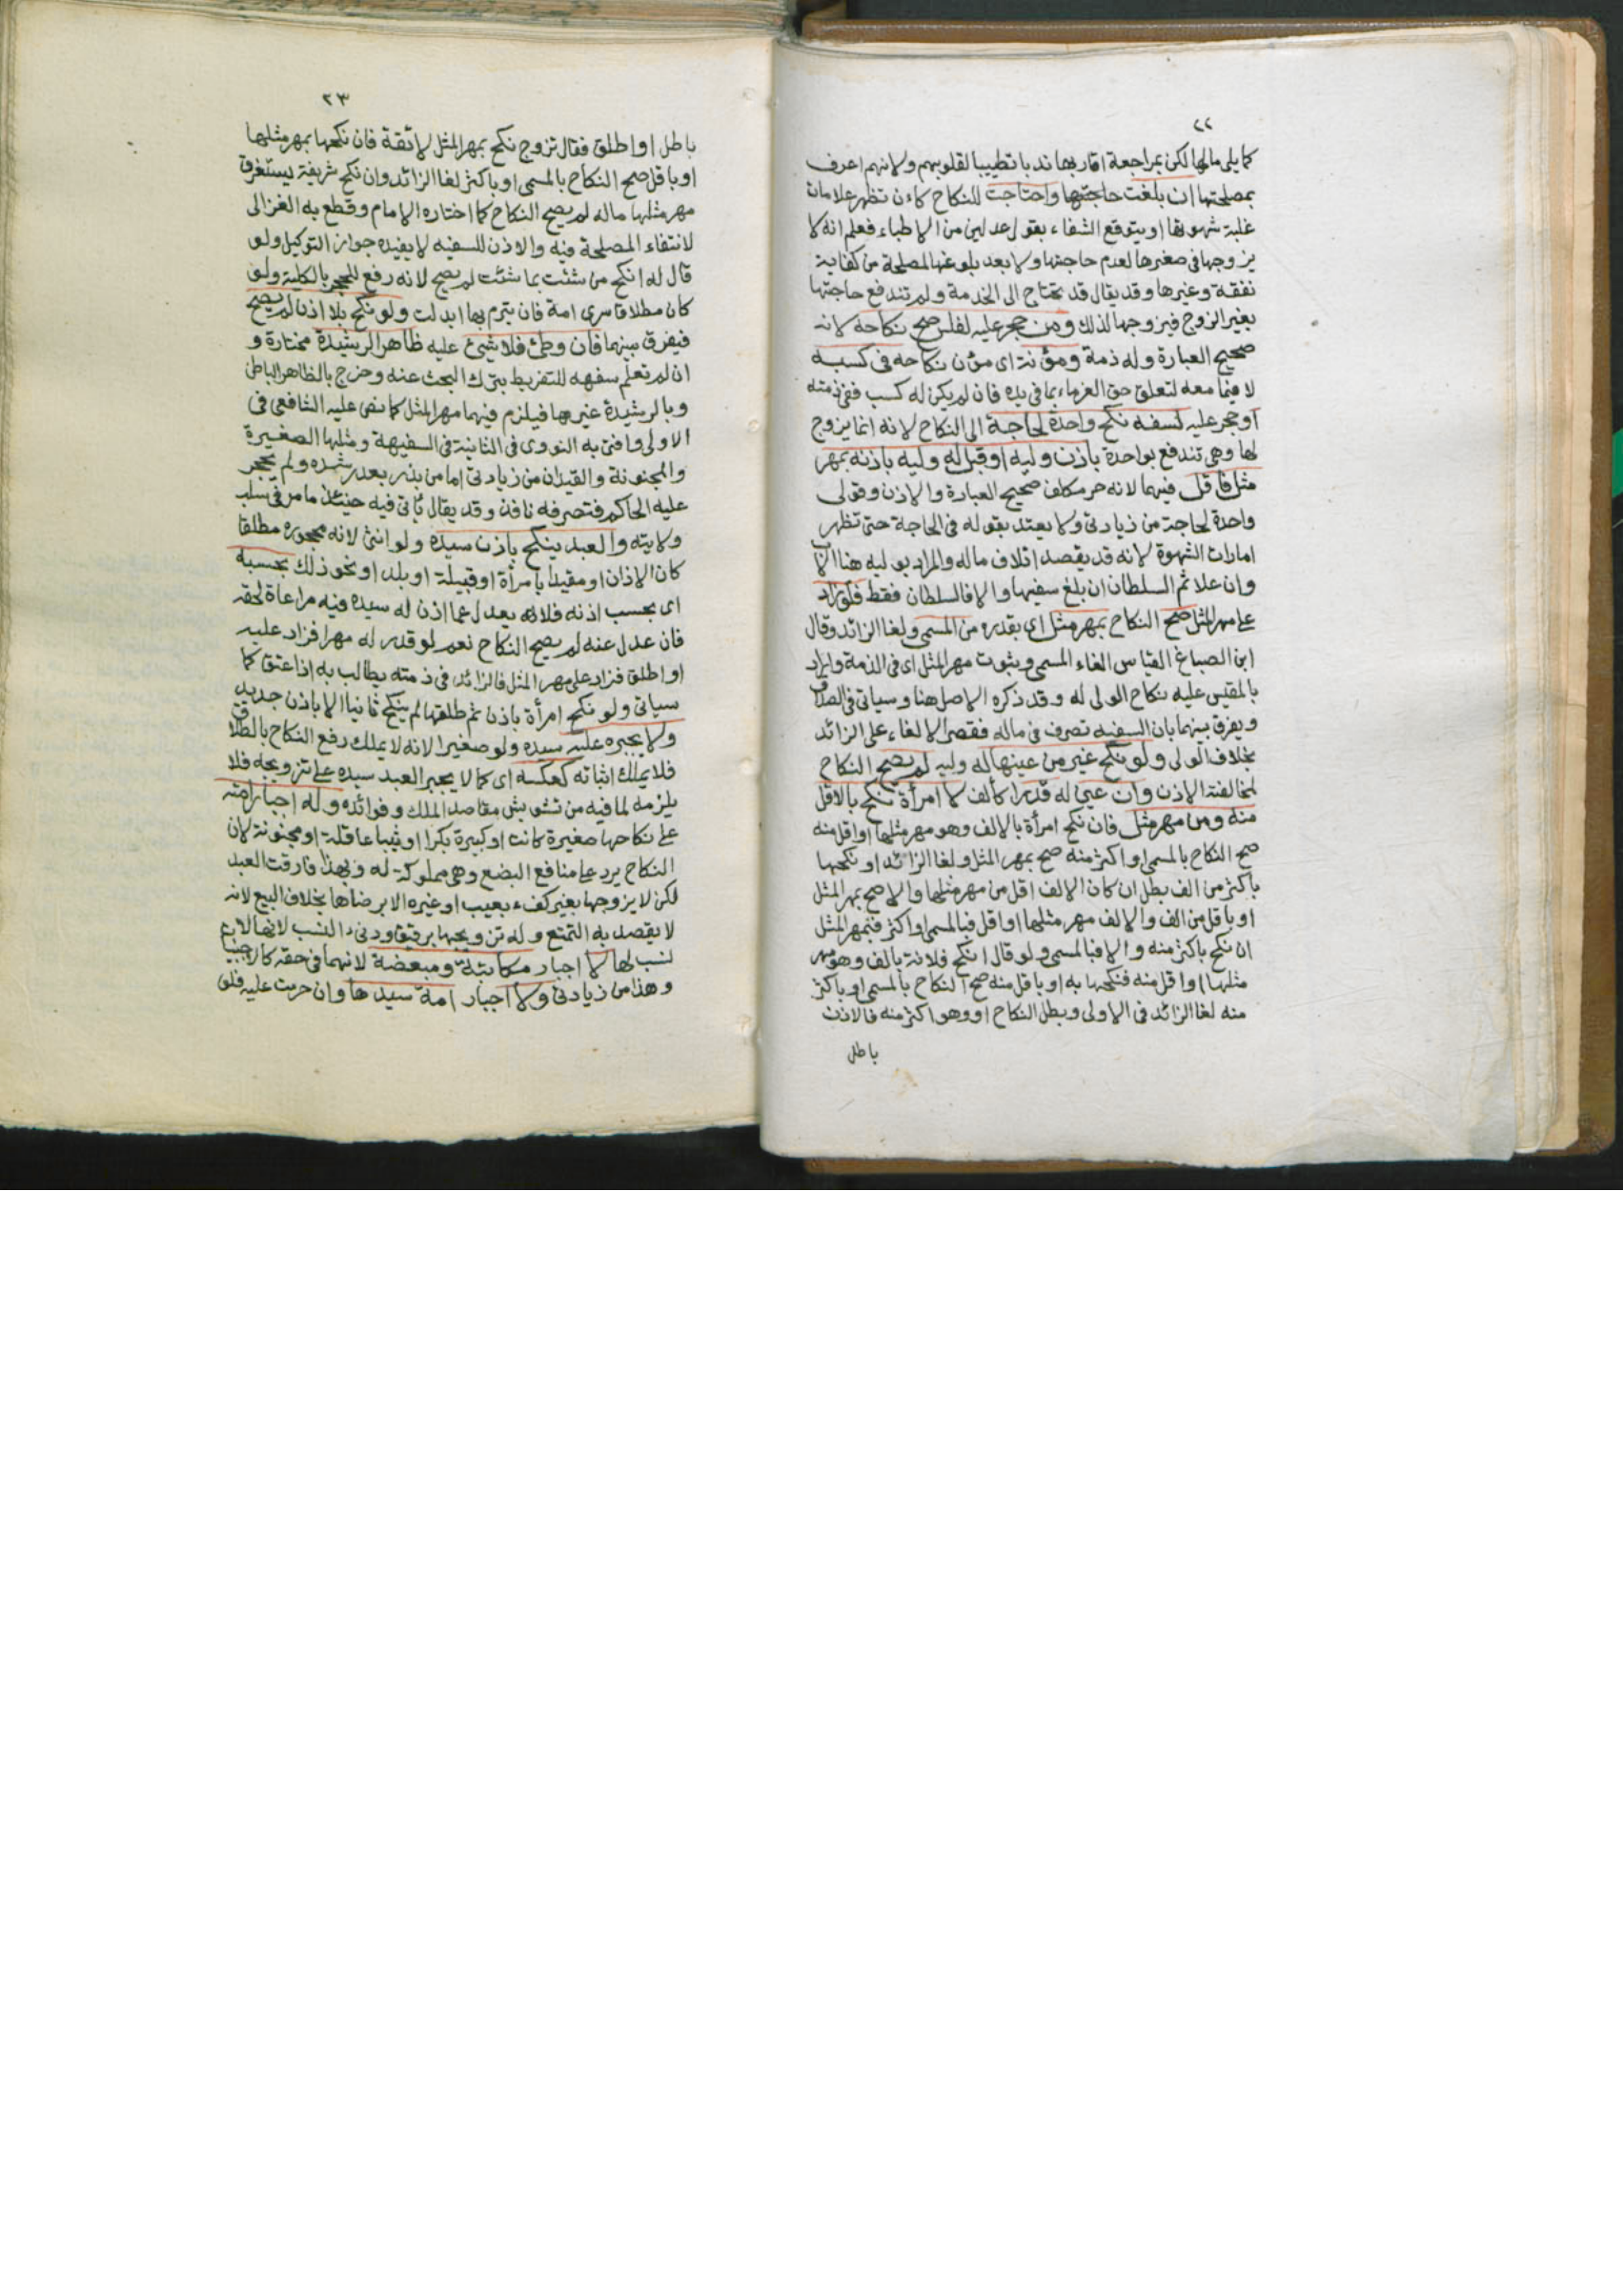 ٢٢
كما يلي مالها لكن بمراجعة اقاربها ندبا تطييبا لقلوبهم ولانهم اعرف
بمصلحتها ان بلغت حاجتها واحتاجت للنكاح كاءن تظهر علامات
غلبة شهوتها او يتوقع الشفاء بقول عدلين من الاطباء فعلم انه لا
يزوجها في صغرها لعدم حاجتها ولا بعد بلوغها لمصلحة من كفاية
نفقة وغيرها وقد يقال قد تحتاج الى الخدمة ولم تندفع حاجتها
بغير الزوج فيزوجها لذلك ومن حجر عليه لفلس صح نكاحه لانه
صحيح العبارة وله ذمة ومؤنته اى مؤن نكاحه في كسبه
لا فيما معه لتعلق حق الغرماء بما في يده فان لم يكن له كسب ففي ذمته
او حجر عليه لسفه نكح واحدة لحاجة الى النكاح لانه انما يزوج
لها وهي تندفع بواحدة باذن وليه او قبل له وليه باذنه بمهر
مثل فاقل فيهما لانه حر مكلف صحيح العبارة والاذن وقولى
واحدة لحاجة من زيادتى ولا يعتد بقوله في الحاجة حتى تظهر
امارات الشهوة لانه قد يقصد اتلاف ماله والمراد بوليه هنا الاب
وان علا ثم السلطان ان بلغ سفيها والا فالسلطان فقط فلو زاد
على مهر المثل صح النكاح بمهر مثل اى بقدره من المسمى ولغا الزائد وقال
ابن الصباغ القياس الغاء المسمى وبثوت مهر المثل اى في الذمة واراد
بالمقيس عليه نكاح الولى له وقد ذكره الاصل هنا وسياتى في الصداق
ويفرق بينهما بان السفيه تصرف في ماله فقصر الالغاء على الزائد
بخلاف الولى ولو نكح غير من عينها له وليه لم يصح النكاح
لمخالفته الاذن وان عين له قدرا كألف لا امرأة نكح بالاقل
منه ومن مهر مثل فان نكح امرأة بالالف وهو مهر مثلها او اقل منه
صح النكاح بالمسمى او اكثر منه صح بمهر المثل ولغا الزائد او نكحها
باكثر من الف بطل ان كان الالف اقل من مهر مثلها والا صح بمهر المثل
او باقل من الف والالف مهر مثلها او اقل فبالمسمى او اكثر فبمهر المثل
ان نكح باكثر منه والا فبالمسمى ولو قال انكح فلانة بالف وهو مهر
مثلها او اقل منه فنكحها به او باقل منه صح النكاح بالمسمى او باكثر
منه لغا الزائد في الاولى وبطل النكاح او وهو اكثر منه فالاذن
باطل
٢٣
باطل او اطلق فقال تزوج نكح بمهر المثل لائقة فان نكحها بمهر مثلها
او باقل صح النكاح بالمسمى او باكثر لغا الزائد وان نكح شريفة يستغرق
مهر مثلها ماله لم يصح النكاح كما اختاره الامام وقطع به الغزالى
لانتفاء المصلحة فيه والاذن للسفيه لا يفيده جواز التوكيل ولو
قال له انكح من شئت بما شئت لم يصح لانه رفع للحجر بالكلية ولو
كان مطلاقا سرى امة فان تبرم بها ابدلت ولو نكح بلا اذن لم يصح
فيفرق بينهما فان وطئ فلا شيئ عليه ظاهرا لرشيدة مختارة و
ان لم تعلم سفهه للتفريط بترك البحث عنه وخرج بالظاهر الباطن
وبالرشيدة غيرها فيلزم فيهما مهر المثل كما نص عليه الشافعي في
الاولى وافتى به النووى في الثانية في السفيهة ومثلها الصغيرة
والمجنونة والقيدان من زيادتى اما من بذر بعد رشده ولم يحجر
عليه الحاكم فتصرفه نافذ وقد يقال يأتى فيه حينئذ ما مر في سلب
ولايته والعبد ينكح باذن سيده ولو انثى لانه محجوره مطلقا
كان الاذن او مقيدا بامرأة او قبيلة او بلد او نحو ذلك بحسبه
اى بحسب اذنه فلا يعدل عما اذن له سيده فيه مراعاة لحقه
فان عدل عنه لم يصح النكاح نعم لو قدر له مهرا فزاد عليه
او اطلق فزاد على مهر المثل فالزائد في ذمته يطالب به اذا عتق كما
سياتى ولو نكح امرأة باذن ثم طلقها لم ينكح ثانيا الا باذن جديد
ولا يجبره عليه سيده ولو صغيرا لانه لا يملك رفع النكاح بالطلاق
فلا يملك اثباته كعكسه اى كما لا يجبر العبد سيده على تزويجه فلا
يلزمه لما فيه من تشويش مقاصد الملك وفوائده وله اجبار امته
على نكاحها صغيرة كانت او كبيرة بكرا او ثيبا عاقلة او مجنونة لان
النكاح يرد على منافع البضع وهى مملوكة له وبهذا فارقت العبد
لكن لا يزوجها بغير كفء بعيب او غيره الا برضاها بخلاف البيع لانه
لا يقصد به التمتع وله تزويجها برقيق ودنىء النسب لانها لا
نسب لها لا اجبار مكاتبة ومبعضة لانهما في حقه كاجنبي
وهذا من زيادتى ولا اجبار امة سيدها وان حرمت عليه فلو